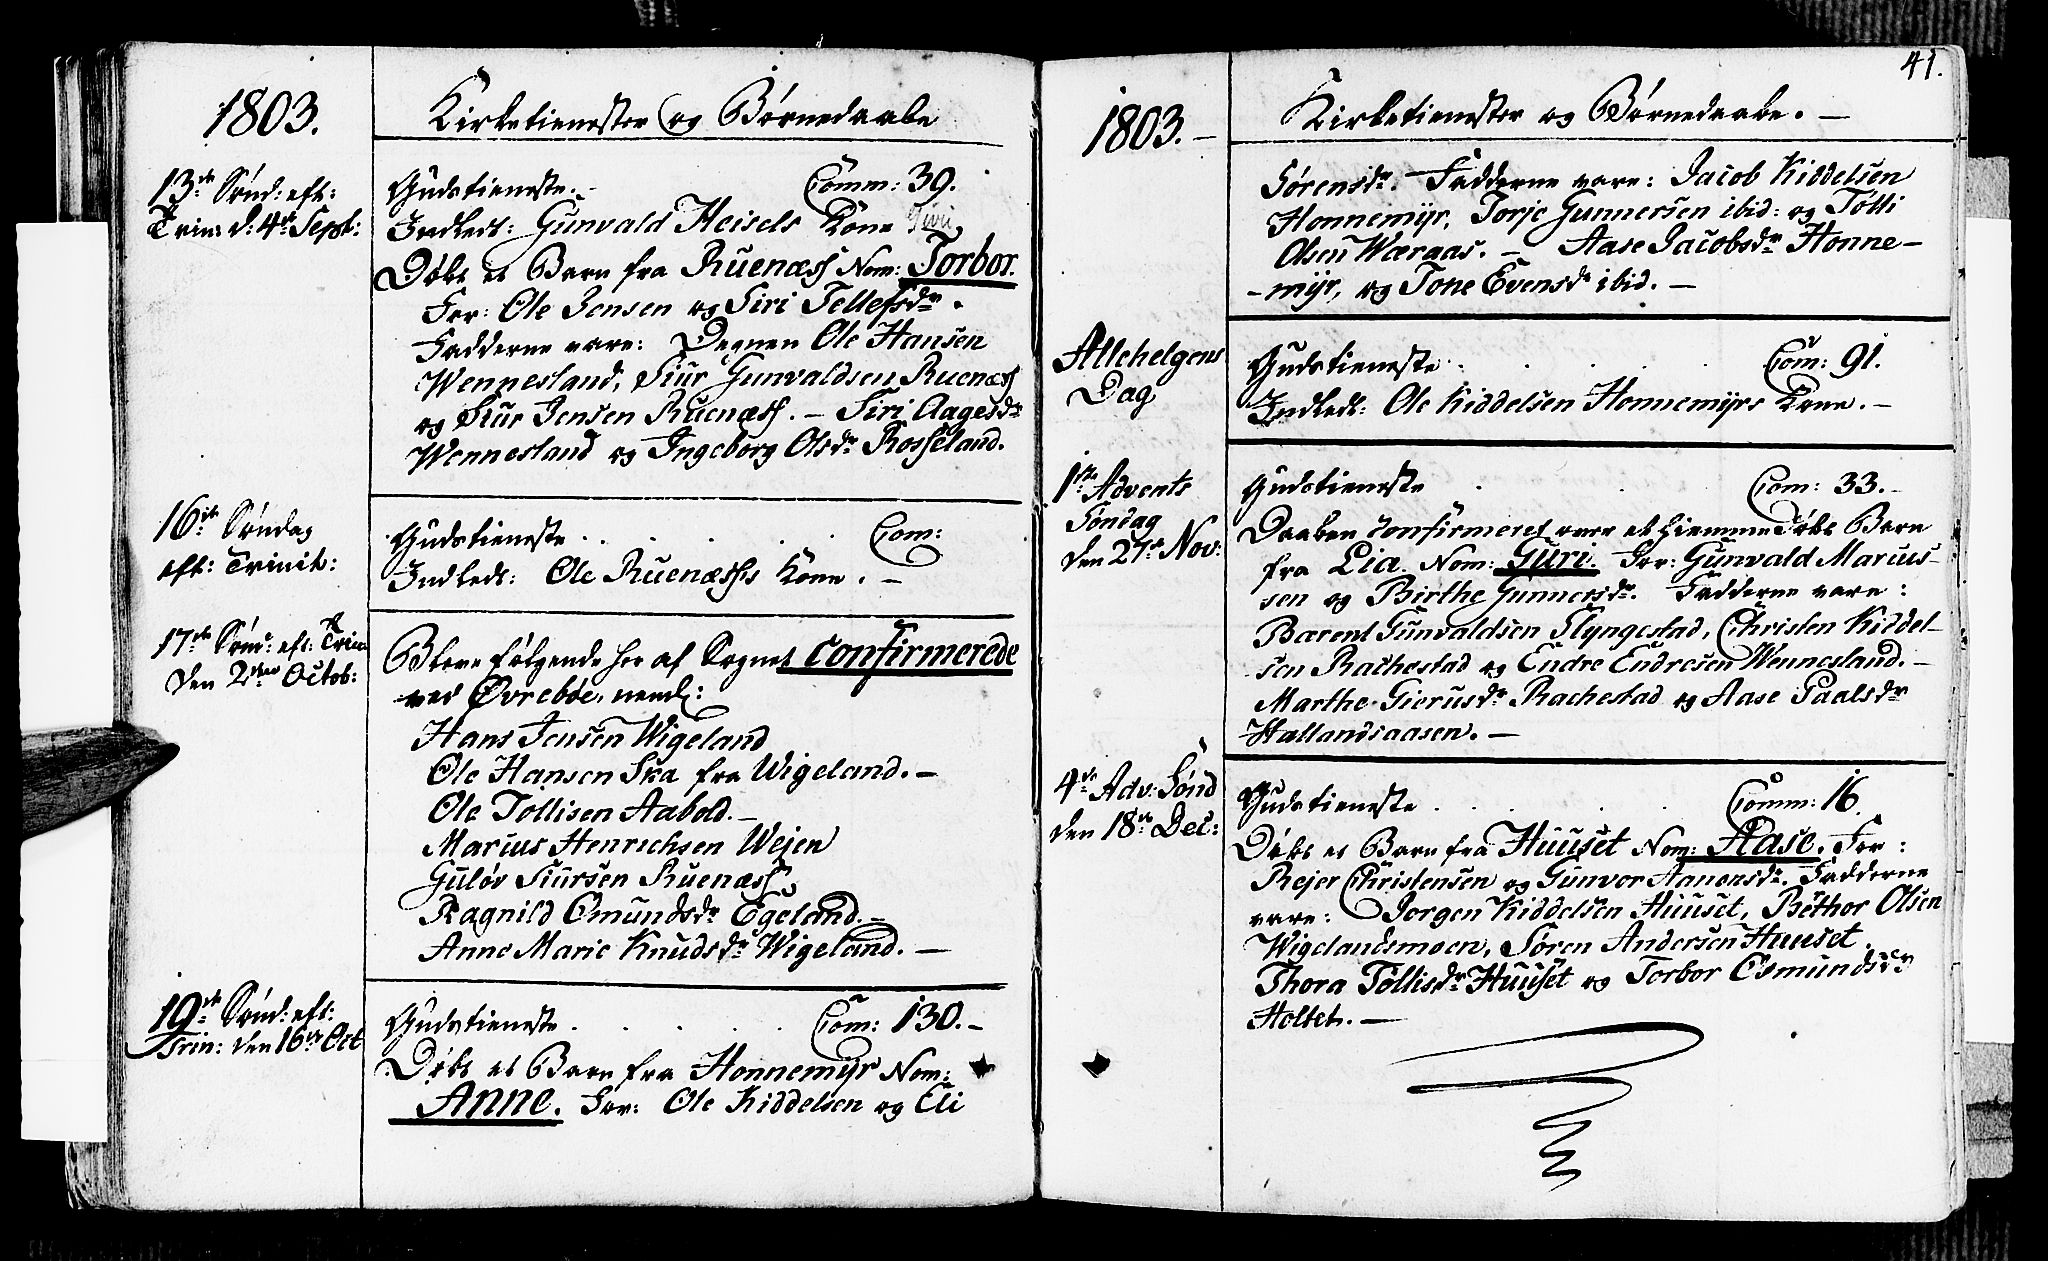 1803.
Kirketienester og Børnedaabe
13de Sønd: eft:
Trin: d: 4de Sept:
Gudstieneste. Comm: 39.
Indledt: Gunvald Heisels Kone Guri
Døbt et Barn fra Ruenæss Nom: Torbor.
For: Ole Jensen og Siri Tellefsdr.
Fadderne vare: Degnen Ole Hansen
Wennesland, Siur Gunvaldsen Ruenæss
og Siur Jensen Ruenæss. – Siri Aagesdr
Wennesland og Ingeborg Olsdr Rosseland.
16de Søndag
eft: Trinit:
Gudstieneste . . . . . Com:
Indledt: Ole Ruenæss's Kone. –
17de Sønd: eft: Trin
den 2den Octob:
Bleve følgende her af Sognet confirmerede
ved Øvrebøe, neml:
Hans Jensen Wigeland
Ole Hansen Ska fra Wigeland. –
Ole Tollisen Aabold. –
Marius Henrichsen Wejen
Guløv Siursen Ruenæss
Ragnild Omundsdr Egeland. –
Anne Marie Knudsdr Wigeland. –
19de Sønd: eft:
Trin: den 16de Oct
Gudstieneste . . . . . Com: 130. –
Døbt et Barn fra Honnemyr Nom:
Anne. For: Ole Kiddelsen og Eli
41.
1803. –
Kirketienester og Børnedaabe. –
Sørensdr. Fadderne vare: Jacob Kiddelsen
Honnemyr, Torje Gunnersen ibid: og Tolli
Olsen Wæraas. – Aase Jacobsdr Honne–
–myr, og Tone Evensdr ibid. –
Allehelgens
Dag
Gudstieneste . . . . Com: 91.
Indledt: Ole Kiddelsen Honnemyrs Kone. –
1ste Advents
Søndag
den 27de Nov:
Gudstieneste . . Com: 33. –
Daaben confirmeret over et hiemmedøbt Barn
fra Lia. Nom: Guri. For: Gunvald Marcus–
sen og Birthe Gunnersdr. Fadderne vare:
Bærent Gunvaldsen Slyngestad, Christen Kiddel–
sen Rachestad og Endre Endresen Wennesland. –
Marthe Gierusdr Rachestad og Aase Paalsdr
Hallandsaasen. –
4de Adv: Sønd
den 18de Dec:
Gudstieneste . . . . Comm: 16.
Døbt et Barn fra Huuset Nom: Aase. For:
Rejer Christensen og Gunvor Aanensdr. Fadderne
vare: Jorgen Kiddelsen Huuset, Bethor Olsen
Wigelandsmoen, Søren Andersen Huuset.
Thora Tollisdr Huuset og Torbor Osmundsdr
Holtet. –